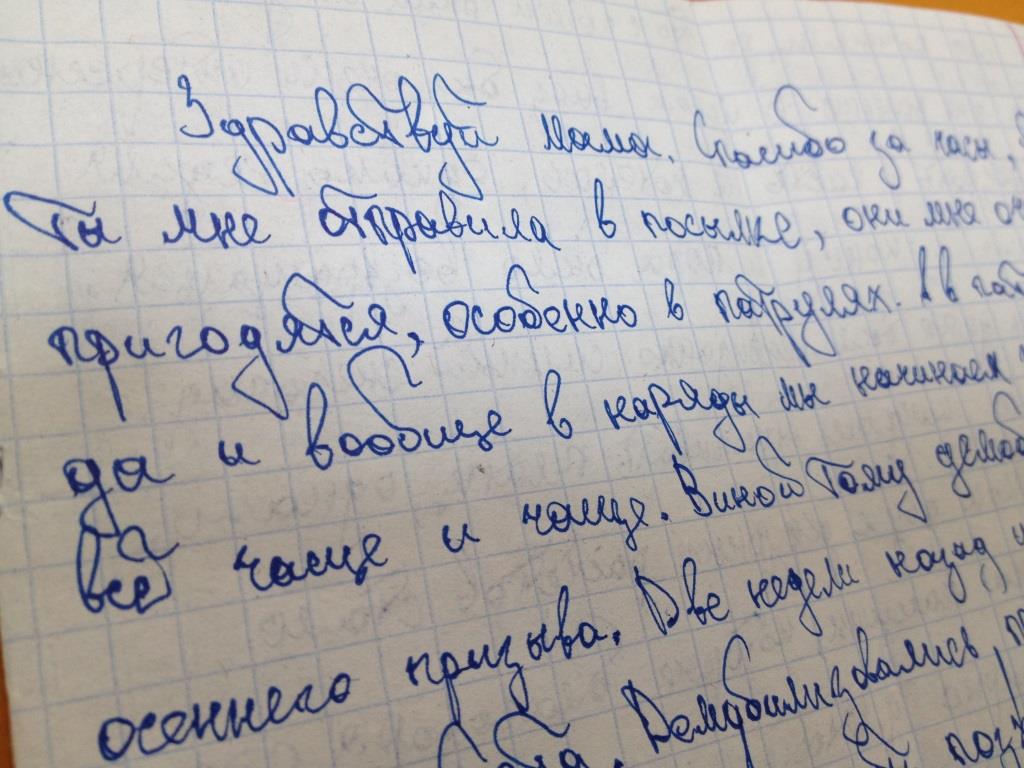 Здравствуй мама. Спасибо за часы,
Ты мне отправила в посылке, они мне
пригодятся, особенно в патрулях. А в
да и вообще в наряды мы начинаем
всё чаще и чаще. Виной тому
осеннего призыва. Две недели назад
Демобилизовались